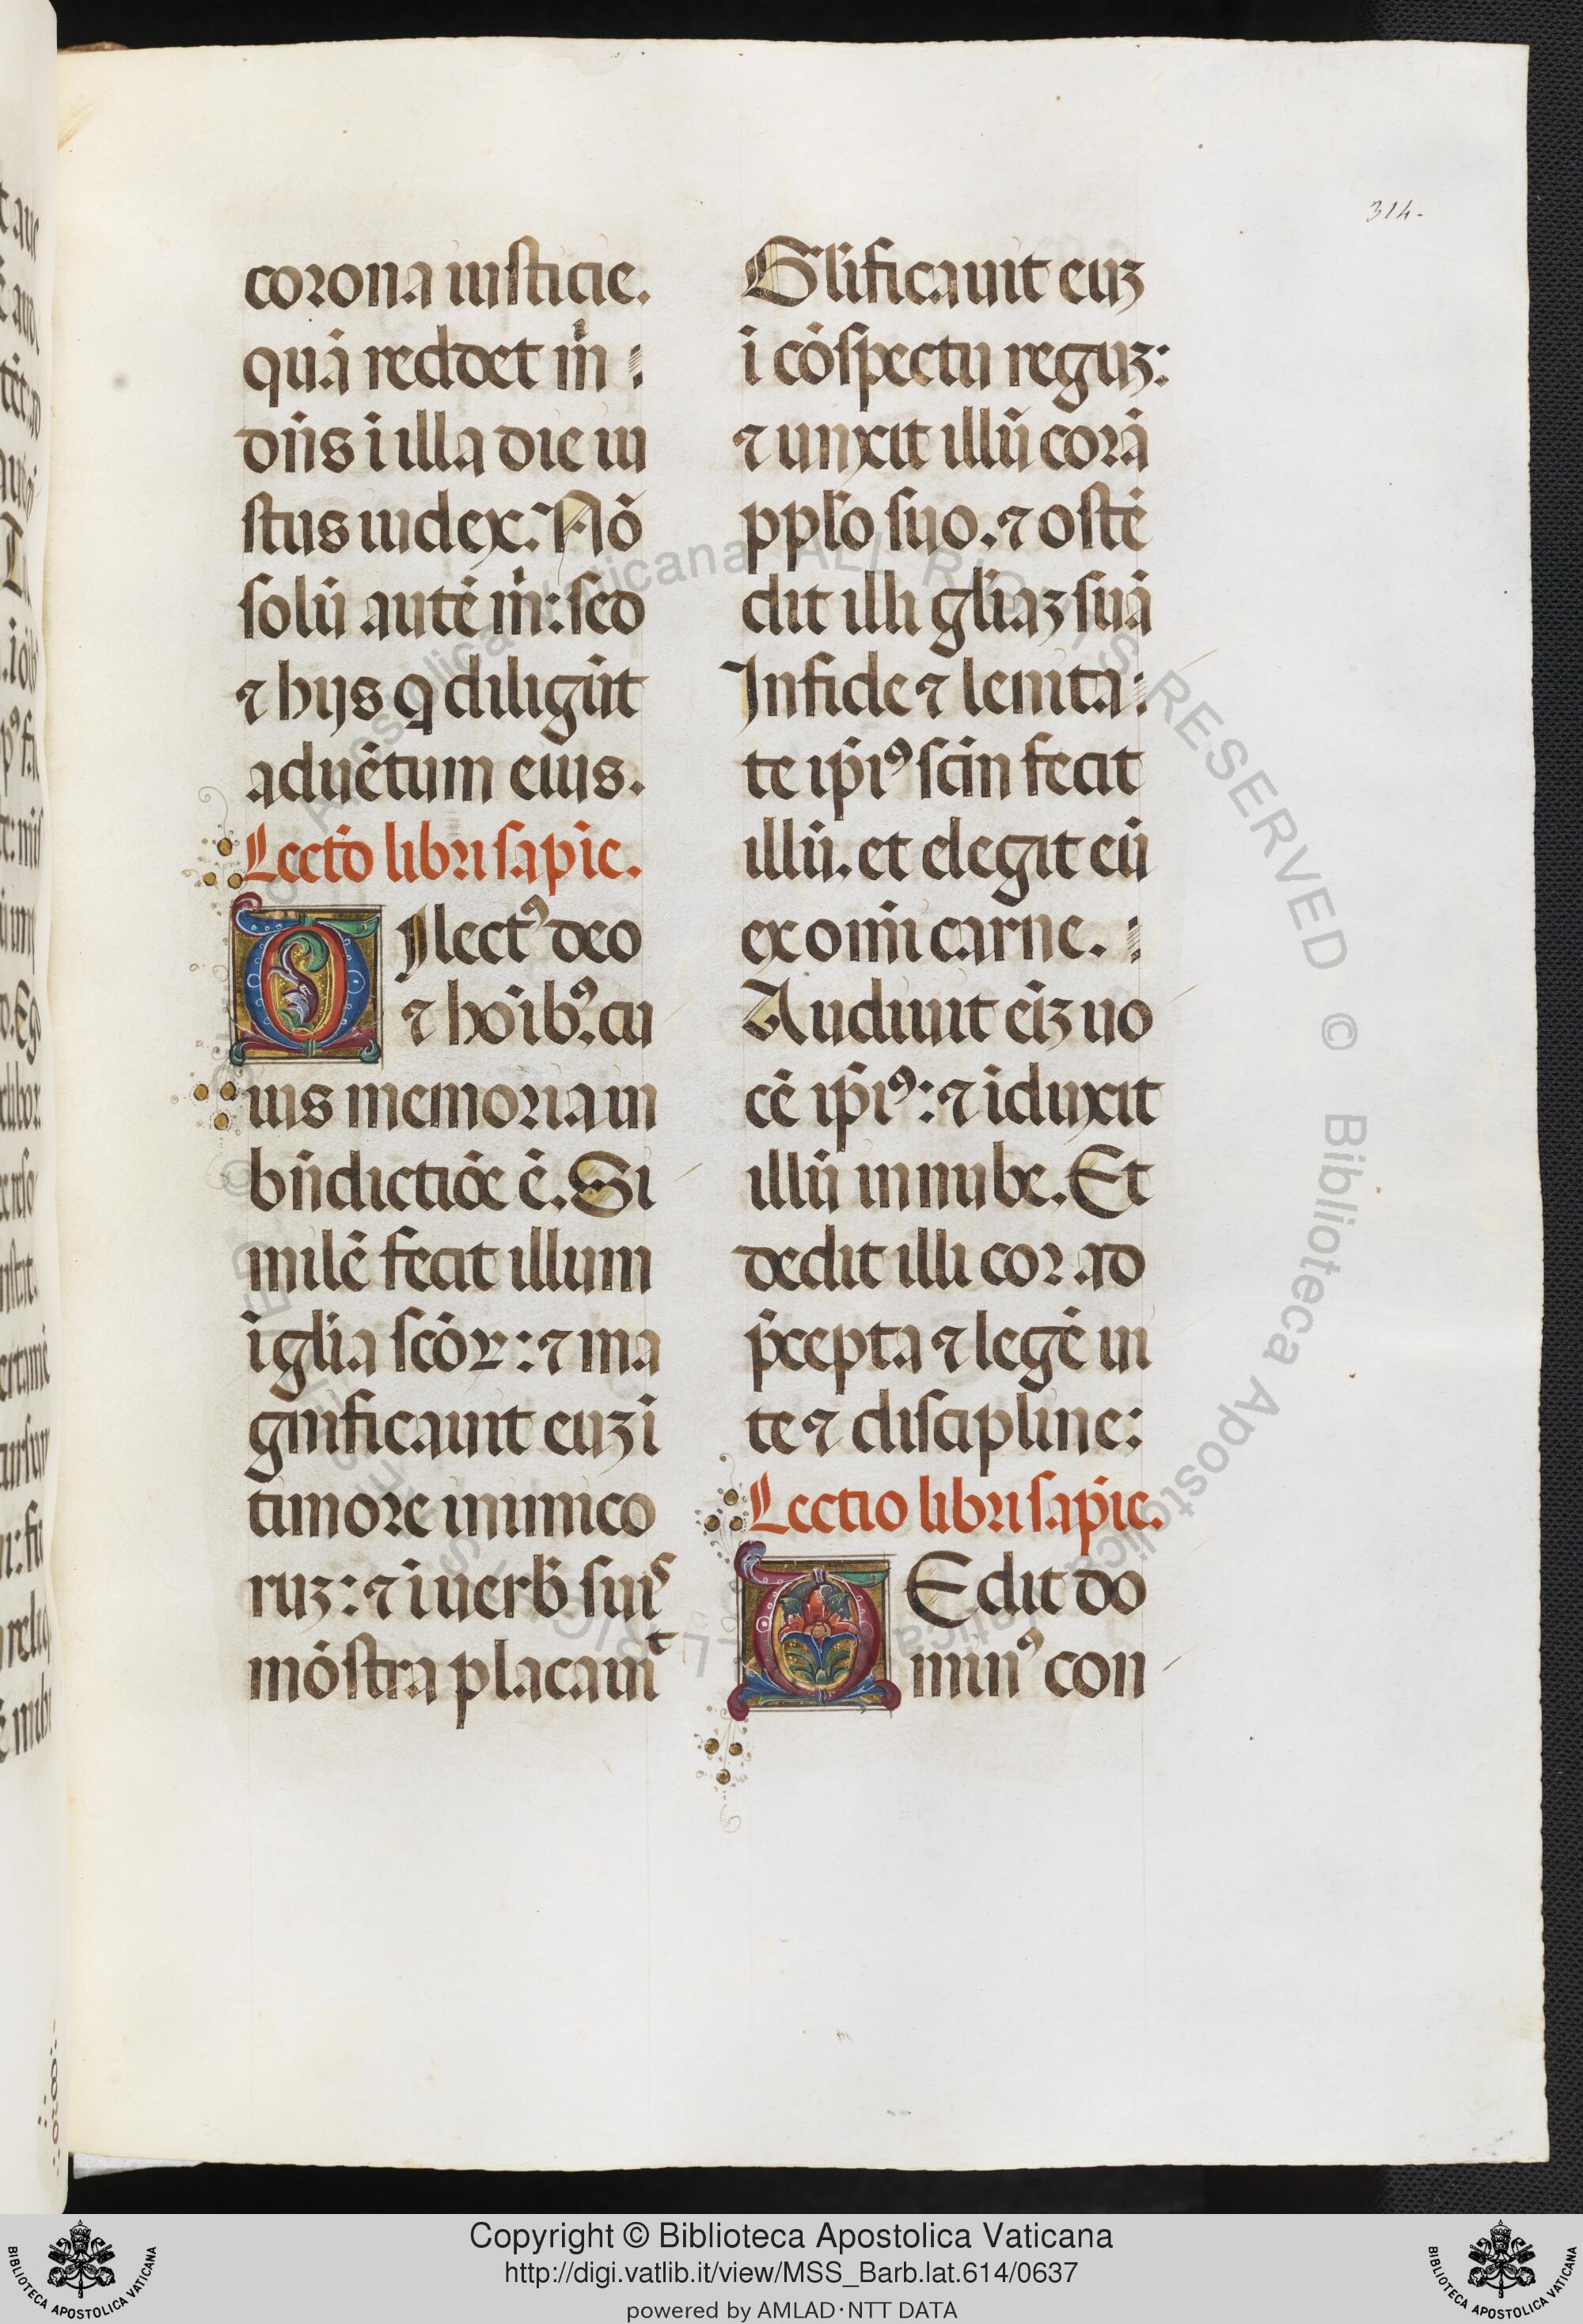 314.
corona iusticie.
quā reddet m̄
dn̄s ī illa die iu
stus iudex. Nō
solū autē m̄: sed
⁊ hijs q diligūt
aduētum eius.
Lectō libri sapīe.
DIlectꝰ deo
⁊ hoīb; cu
ius memoria in
bn̄dictiōe ē. Si
milē fecit illum
ī gl̄ia scōꝝ: ⁊ ma
gnificauit euꝫ ī
timore inimico
ruꝫ: ⁊ ī uerb̄ suis
mōstra placauit
Gl̄ificauit euꝫ
ī cōspectu reguꝫ:
⁊ unxit illū corā
pplo suo. ⁊ ostē
dit illi gl̄iaꝫ suā
In fide ⁊ lenita
te ip̄iꝰ scm̄ fecit
illū. et elegit eū
ex omī carne.
Audiuit eīꝫ uo
cē ip̄iꝰ: ⁊ īduxit
illū in nube. Et
dedit illi cor ad
p̄cepta ⁊ legē ui
te ⁊ discipline:
Lectio libri sapīe.
DEdit do
minꝰ con
Copyright © Biblioteca Apostolica Vaticana
http://digi.vatlib.it/view/MSS_Barb.lat.614/0637
powered by AMLAD·NTT DATA
BIBLIOTECA APOSTOLICA VATICANA
BIBLIOTECA APOSTOLICA VATICANA